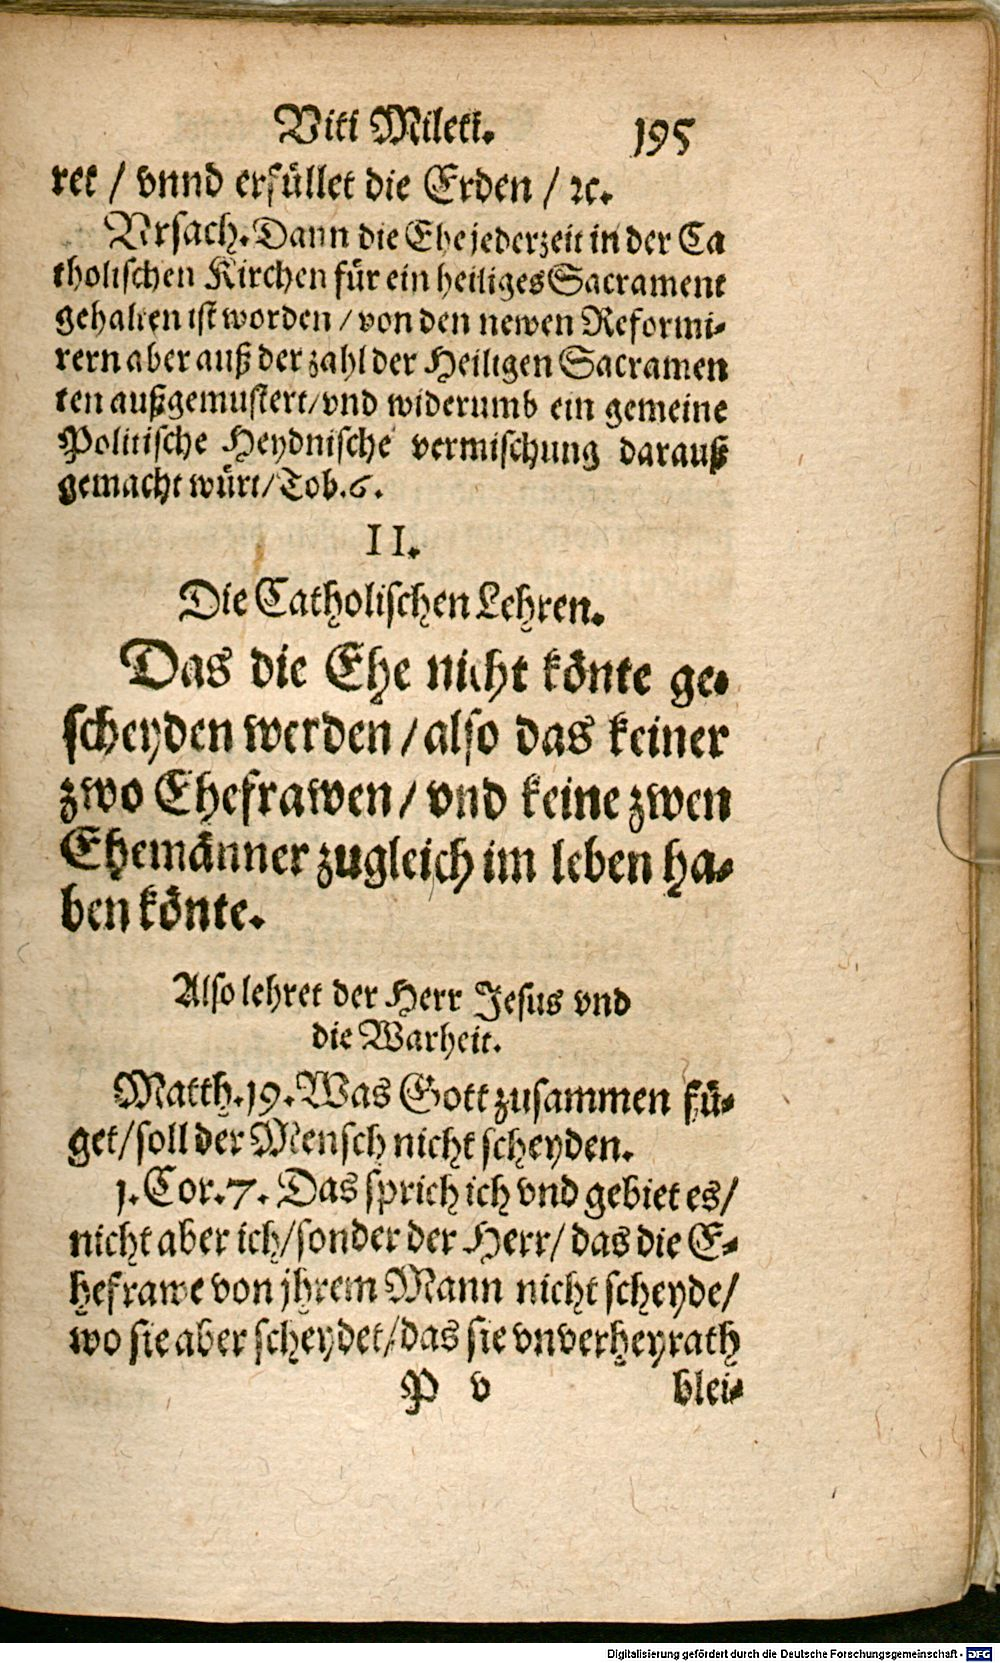 Viti Mileti. 195
ret / vnnd erfüllet die Erden / ꝛc.
Vrsach. Dann die Ehe jederzeit in der Ca
tholischen Kirchen für ein heiliges Sacrament
gehalten ist worden / von den newen Reformi-
rern aber auß der zahl der Heiligen Sacramen
ten außgemustert / vnd widerumb ein gemeine
Politische Heydnische vermischung darauß
gemacht würt / Tob. 6.
II.
Die Catholischen Lehren.
Das die Ehe nicht könte ge-
scheyden werden / also das keiner
zwo Ehefrawen / vnd keine zwen
Ehemänner zugleich im leben ha-
ben könte.
Also lehret der Herr Jesus vnd
die Warheit.
Matth. 19. Was Gott zusammen fü-
get / soll der Mensch nicht scheyden.
1. Cor. 7. Das sprich ich vnd gebiet es /
nicht aber ich / sonder der Herr / das die E-
hefrawe von jhrem Mann nicht scheyde /
wo sie aber scheydet / das sie vnverheyrath
P v blei-
Digitalisierung gefördert durch die Deutsche Forschungsgemeinschaft - DFG